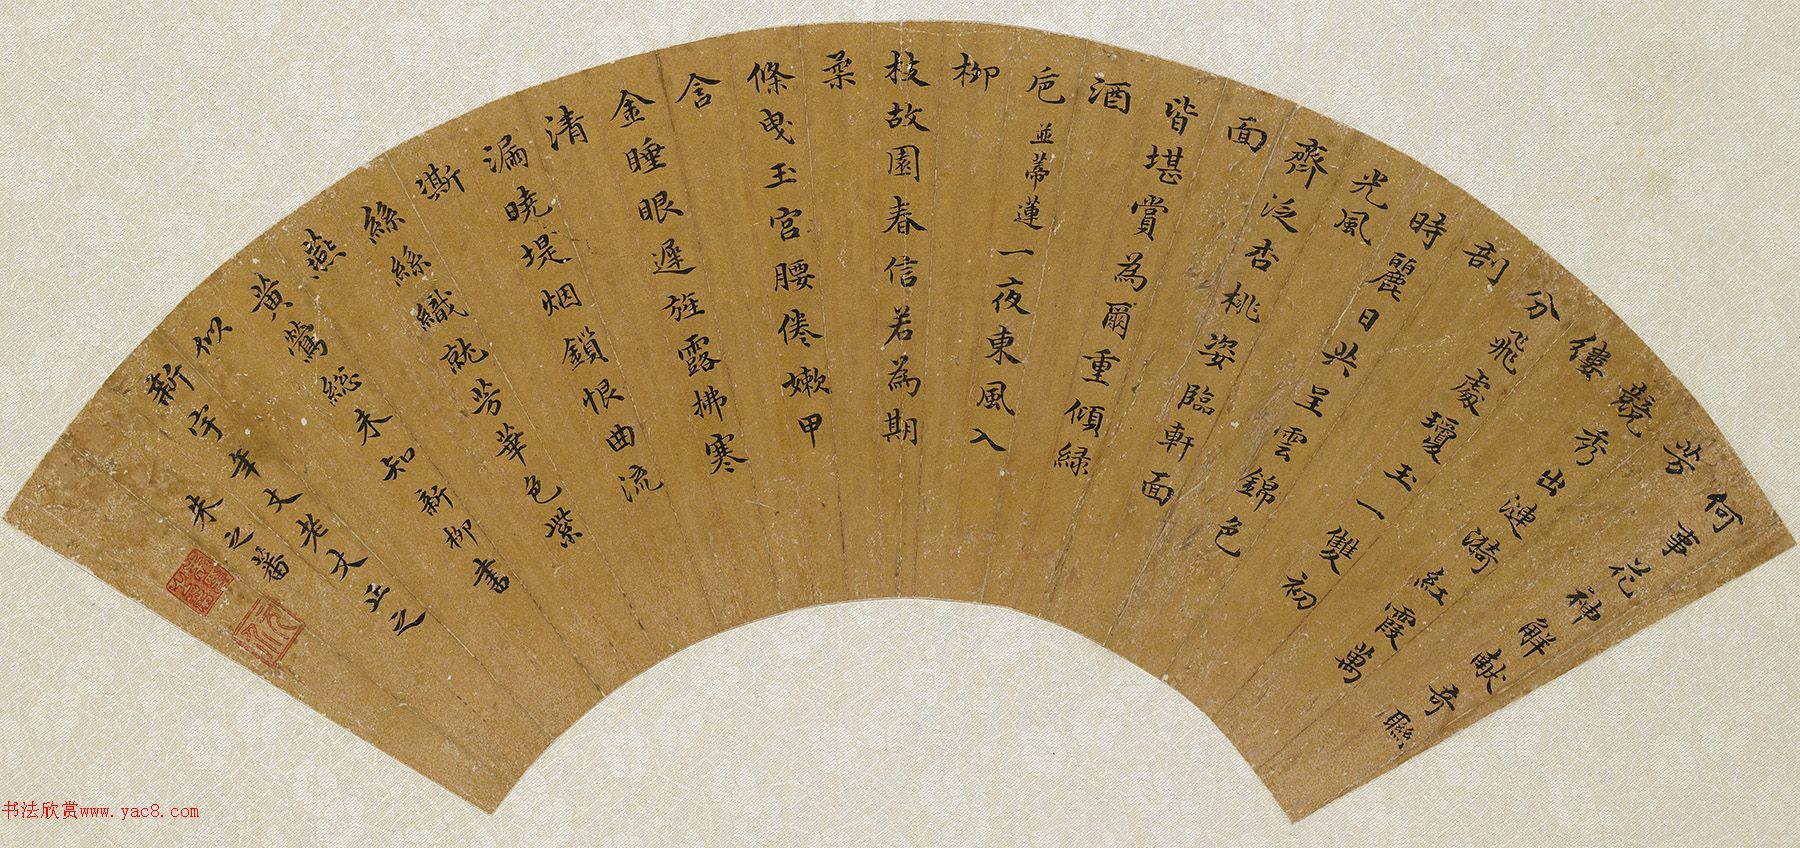 何事花神解献奇聯
芳
競秀出漣漪紅霞萬
縷
分飛處瓊玉一雙初
剖
時麗日共呈雲錦色
光風
齊泛杏桃姿臨軒面
面
皆堪賞為爾重傾緑
酒
卮並蒂蓮一夜東風入
柳
枝故園春信若為期
柔
條曳玉宮腰倦嫩甲
含
金睡眼遲旌露拂寒
清
漏曉堤烟鎖恨曲流
澌
絲絲織就芳華色紫
燕
黃鶯総未知新柳書
似
新宇年丈老丈正之
朱之蕃
书法欣赏www.yac8.com